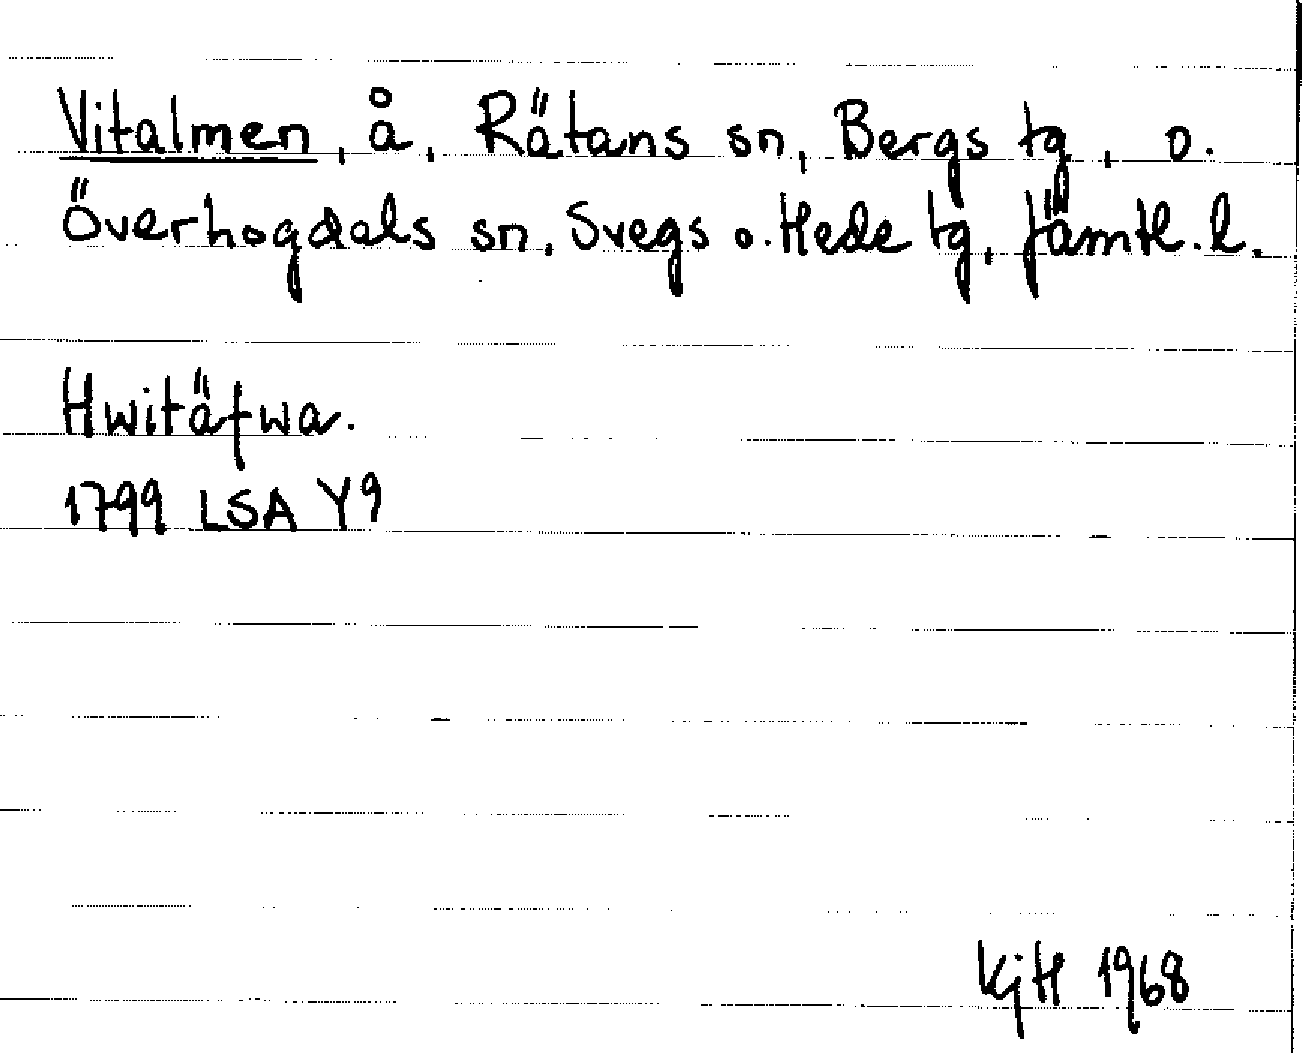 Vitalmen, å, Rätans sn, Bergs tg, o.
Överhogdals sn, Svegs o. Hede tg, Jämtl. l.
Hwitäfwa.
1799 LSA Y9
KjH 1968